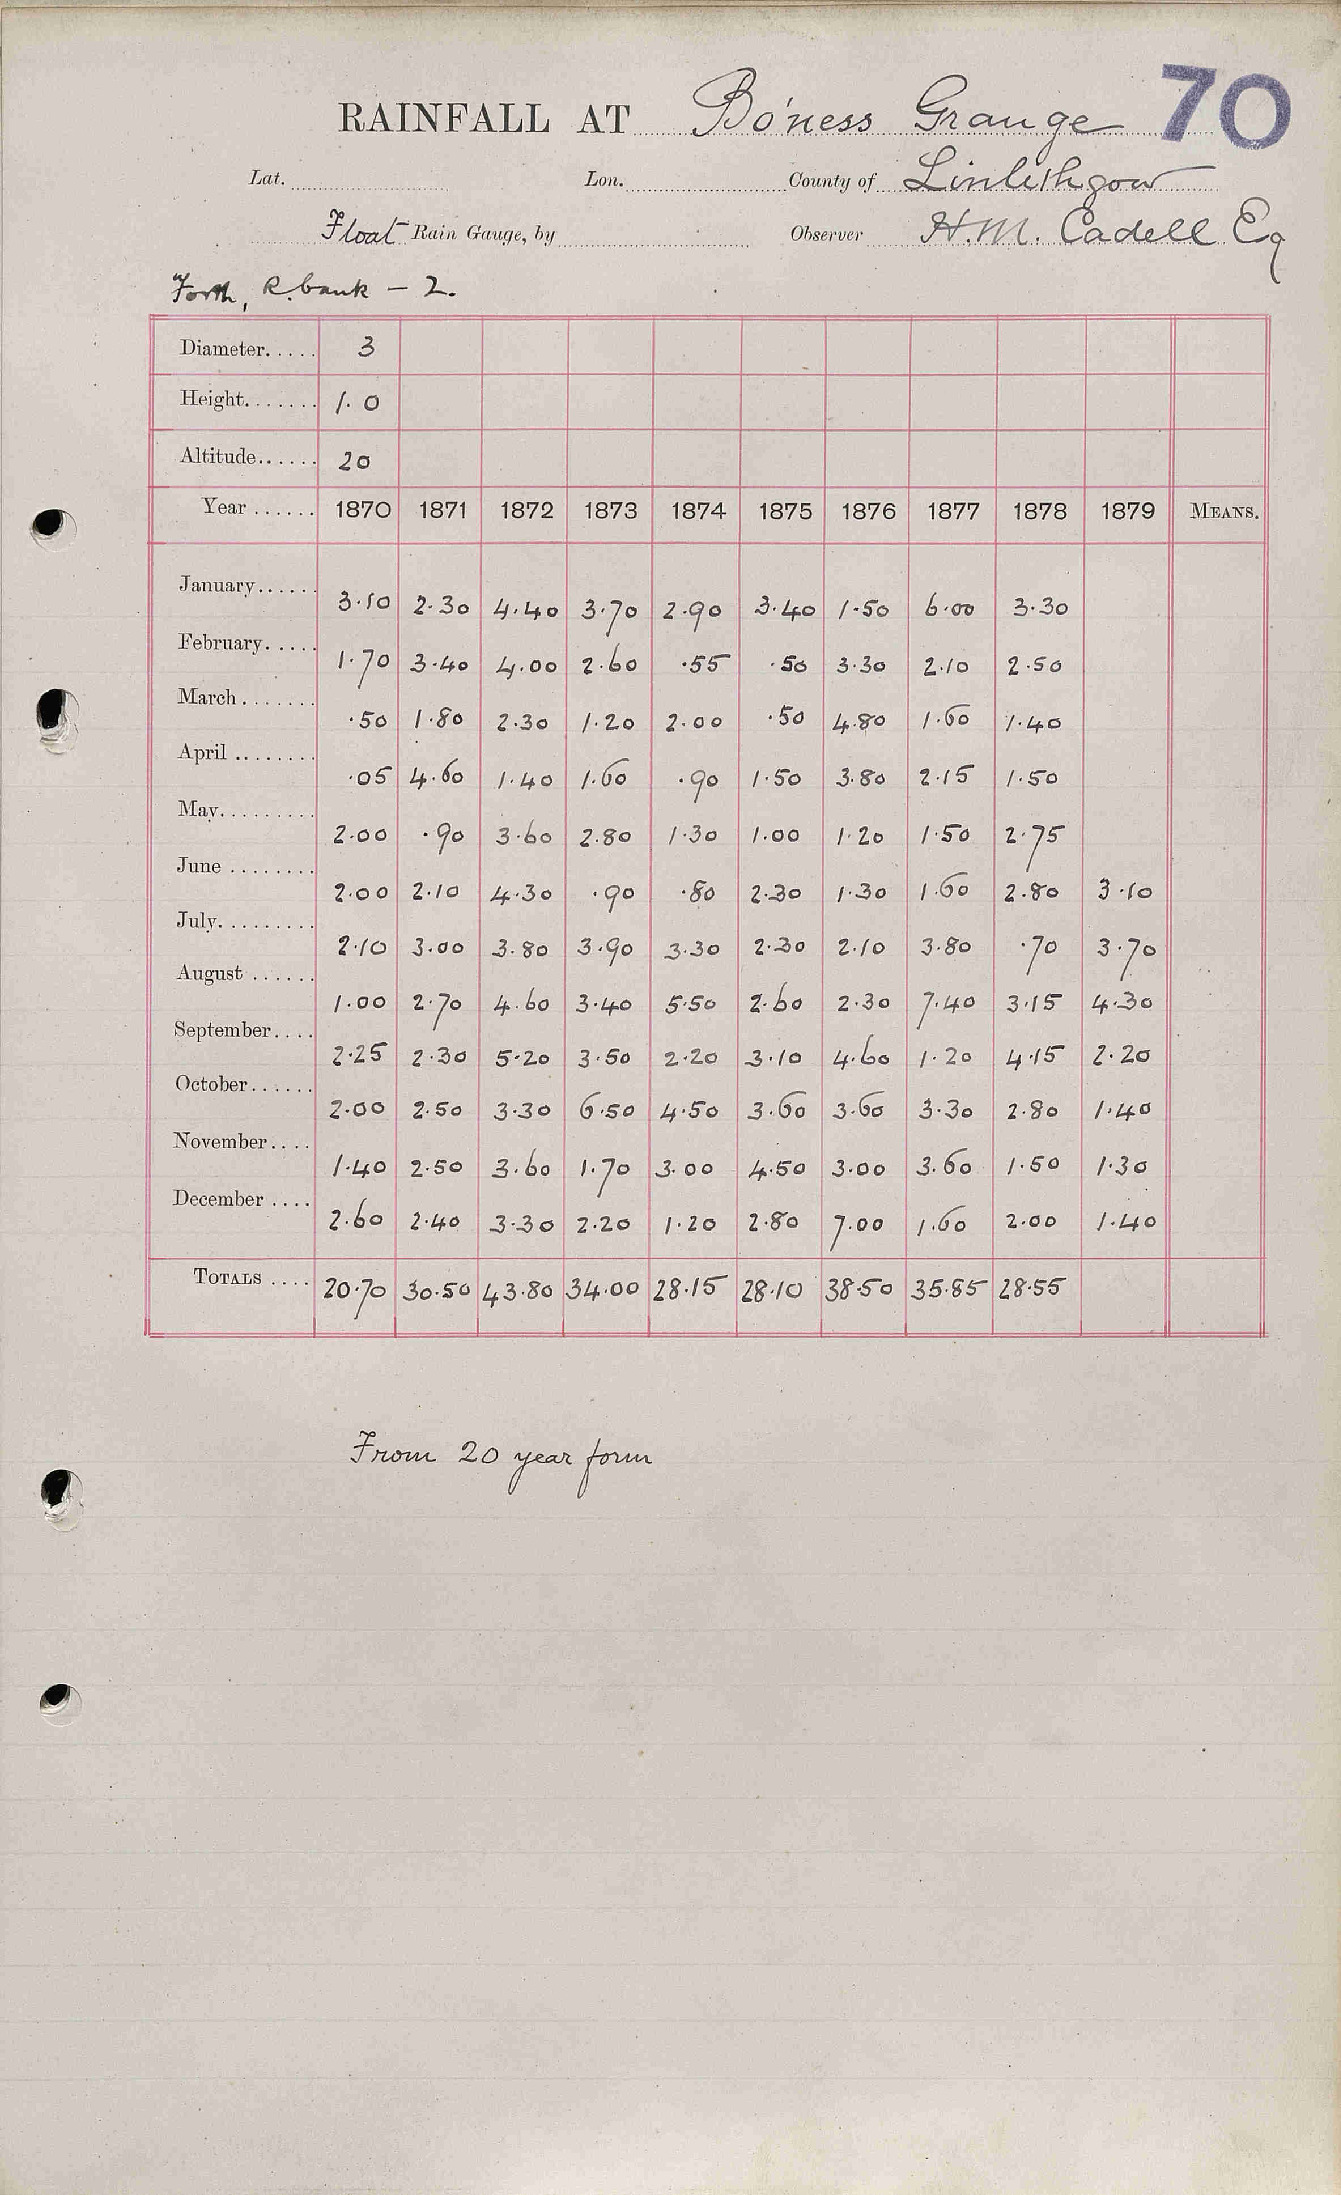 70
RAINFALL AT Bo'ness Grange
Lat. Lon. County of Linlithgow
Float Rain Gauge, by Observer H.M. Cadell Eq
Forth, R. bank – 2.
Diameter..... 3
Height....... 1. 0
Altitude...... 20
Year ...... 1870 1871 1872 1873 1874 1875 1876 1877 1878 1879 MEANS.
January...... 3.10 2.30 4.40 3.70 2.90 3.40 1.50 6.00 3.30
February..... 1.70 3.40 4.00 2.60 .55 .50 3.30 2.10 2.50
March....... .50 1.80 2.30 1.20 2.00 .50 4.80 1.60 1.40
April ........ .05 4.60 1.40 1.60 .90 1.50 3.80 2.15 1.50
May......... 2.00 .90 3.60 2.80 1.30 1.00 1.20 1.50 2.75
June ........ 2.00 2.10 4.30 .90 .80 2.30 1.30 1.60 2.80 3.10
July......... 2.10 3.00 3.80 3.90 3.30 2.30 2.10 3.80 .70 3.70
August ...... 1.00 2.70 4.60 3.40 5.50 2.60 2.30 7.40 3.15 4.30
September.... 2.25 2.30 5.20 3.50 2.20 3.10 4.60 1.20 4.15 2.20
October...... 2.00 2.50 3.30 6.50 4.50 3.60 3.60 3.30 2.80 1.40
November.... 1.40 2.50 3.60 1.70 3.00 4.50 3.00 3.60 1.50 1.30
December .... 2.60 2.40 3.30 2.20 1.20 2.80 7.00 1.60 2.00 1.40
TOTALS .... 20.70 30.50 43.80 34.00 28.15 28.10 38.50 35.85 28.55
From 20 year form